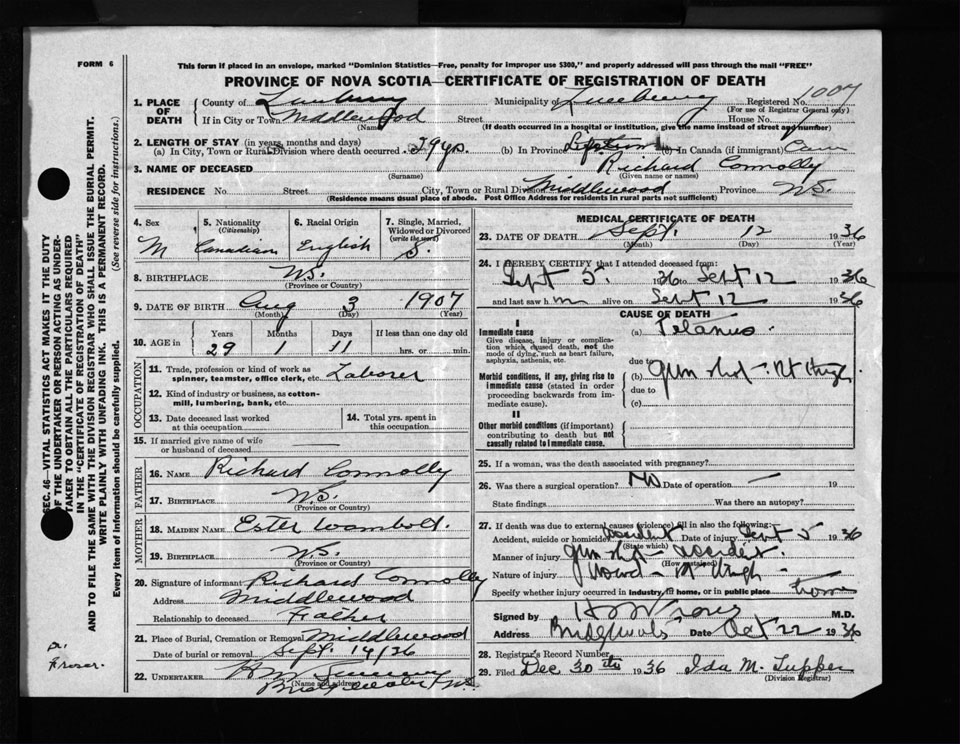 FORM 6
This form if placed in an envelope, marked "Dominion Statistics—Free, penalty for improper use $300," and properly addressed will pass through the mail "FREE"
PROVINCE OF NOVA SCOTIA—CERTIFICATE OF REGISTRATION OF DEATH
1007
1. PLACE OF DEATH
County of Lunenburg Municipality of Lunenburg Registered No.
(For use of Registrar General only)
If in City or Town Middlewood Street House No.
(Name) (If death occurred in a hospital or institution, give the name instead of street and number)
2. LENGTH OF STAY (in years, months and days)
(a) In City, Town or Rural Division where death occurred 29 yrs. (b) In Province Lifetime (c) In Canada (if immigrant) Can
3. NAME OF DECEASED Richard Connolly
(Surname) (Given name or names)
RESIDENCE No Street City, Town or Rural Division Middlewood Province N.S.
(Residence means usual place of abode. Post Office Address for residents in rural parts not sufficient)
4. Sex
M
5. Nationality
(Citizenship)
Canadian
6. Racial Origin
English
7. Single, Married, Widowed or Divorced
(write the word)
S.
8. BIRTHPLACE N.S.
(Province or Country)
9. DATE OF BIRTH Aug 3 1907
(Month) (Day) (Year)
10. AGE in
Years Months Days If less than one day old
29 1 11 hrs. or min.
OCCUPATION
11. Trade, profession or kind of work as spinner, teamster, office clerk, etc. Laborer
12. Kind of industry or business, as cotton-mill, lumbering, bank, etc.
13. Date deceased last worked at this occupation
14. Total yrs. spent in this occupation
15. If married give name of wife or husband of deceased
FATHER
16. NAME Richard Connolly
17. BIRTHPLACE N.S.
(Province or Country)
MOTHER
18. MAIDEN NAME Ester Wambold.
19. BIRTHPLACE N.S.
(Province or Country)
20. Signature of informant Richard Connolly
Address Middlewood
Relationship to deceased Father
21. Place of Burial, Cremation or Removal Middlewood
Date of burial or removal Sept. 14/36
22. UNDERTAKER
(Name and address)
MEDICAL CERTIFICATE OF DEATH
23. DATE OF DEATH Sept. 12 1936
(Month) (Day) (Year)
24. I HEREBY CERTIFY that I attended deceased from:
Sept 5. 1936 to Sept 12 1936
and last saw him alive on Sept 12 1936
CAUSE OF DEATH
I
Immediate cause (a) Tetanus.
Give disease, injury or complication which caused death, not the mode of dying, such as heart failure, asphyxia, asthenia, etc.
due to
Morbid conditions, if any, giving rise to immediate cause (stated in order proceeding backwards from immediate cause).
(b) Gun shot - Rt thigh
due to
(c)
II
Other morbid conditions (if important) contributing to death but not causally related to immediate cause.
25. If a woman, was the death associated with pregnancy?
26. Was there a surgical operation? No Date of operation — 19
State findings Was there an autopsy?
27. If death was due to external causes (violence) fill in also the following:
Accident, suicide or homicide? accident Date of injury Sept 5 1936
(State which)
Manner of injury Gun shot - accident.
(How sustained)
Nature of injury Wound - Rt thigh
Specify whether injury occurred in industry, in home, or in public place home
Signed by M.D.
Address Date Oct 22 1936
28. Registrar's Record Number
29. Filed Dec 30th 1936 Ida M. Tupper
(Division Registrar)
SEC. 46—VITAL STATISTICS ACT MAKES IT THE DUTY OF THE UNDERTAKER OR PERSON ACTING AS UNDERTAKER TO OBTAIN ALL THE PARTICULARS REQUIRED IN THE "CERTIFICATE OF REGISTRATION OF DEATH" AND TO FILE THE SAME WITH THE DIVISION REGISTRAR WHO SHALL ISSUE THE BURIAL PERMIT.
WRITE PLAINLY WITH UNFADING INK. THIS IS A PERMANENT RECORD.
Every item of information should be carefully supplied. (See reverse side for instructions.)